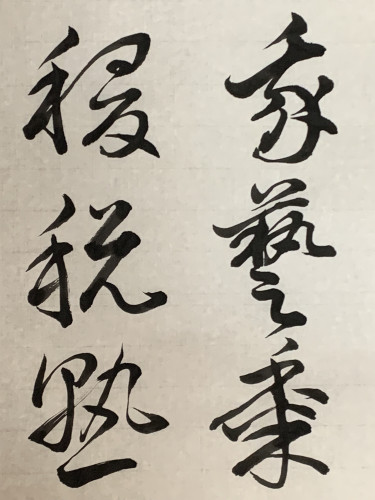 我藝黍
稷稅熟